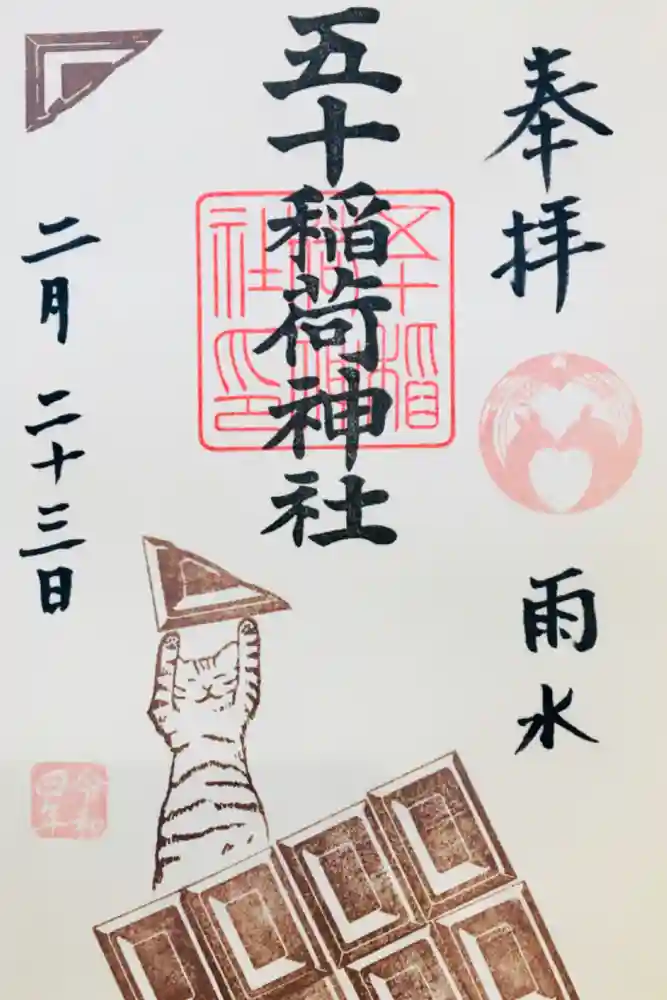 奉拝
雨水
五十稲荷神社
五十稲荷神社印
二月二十三日
令和四年